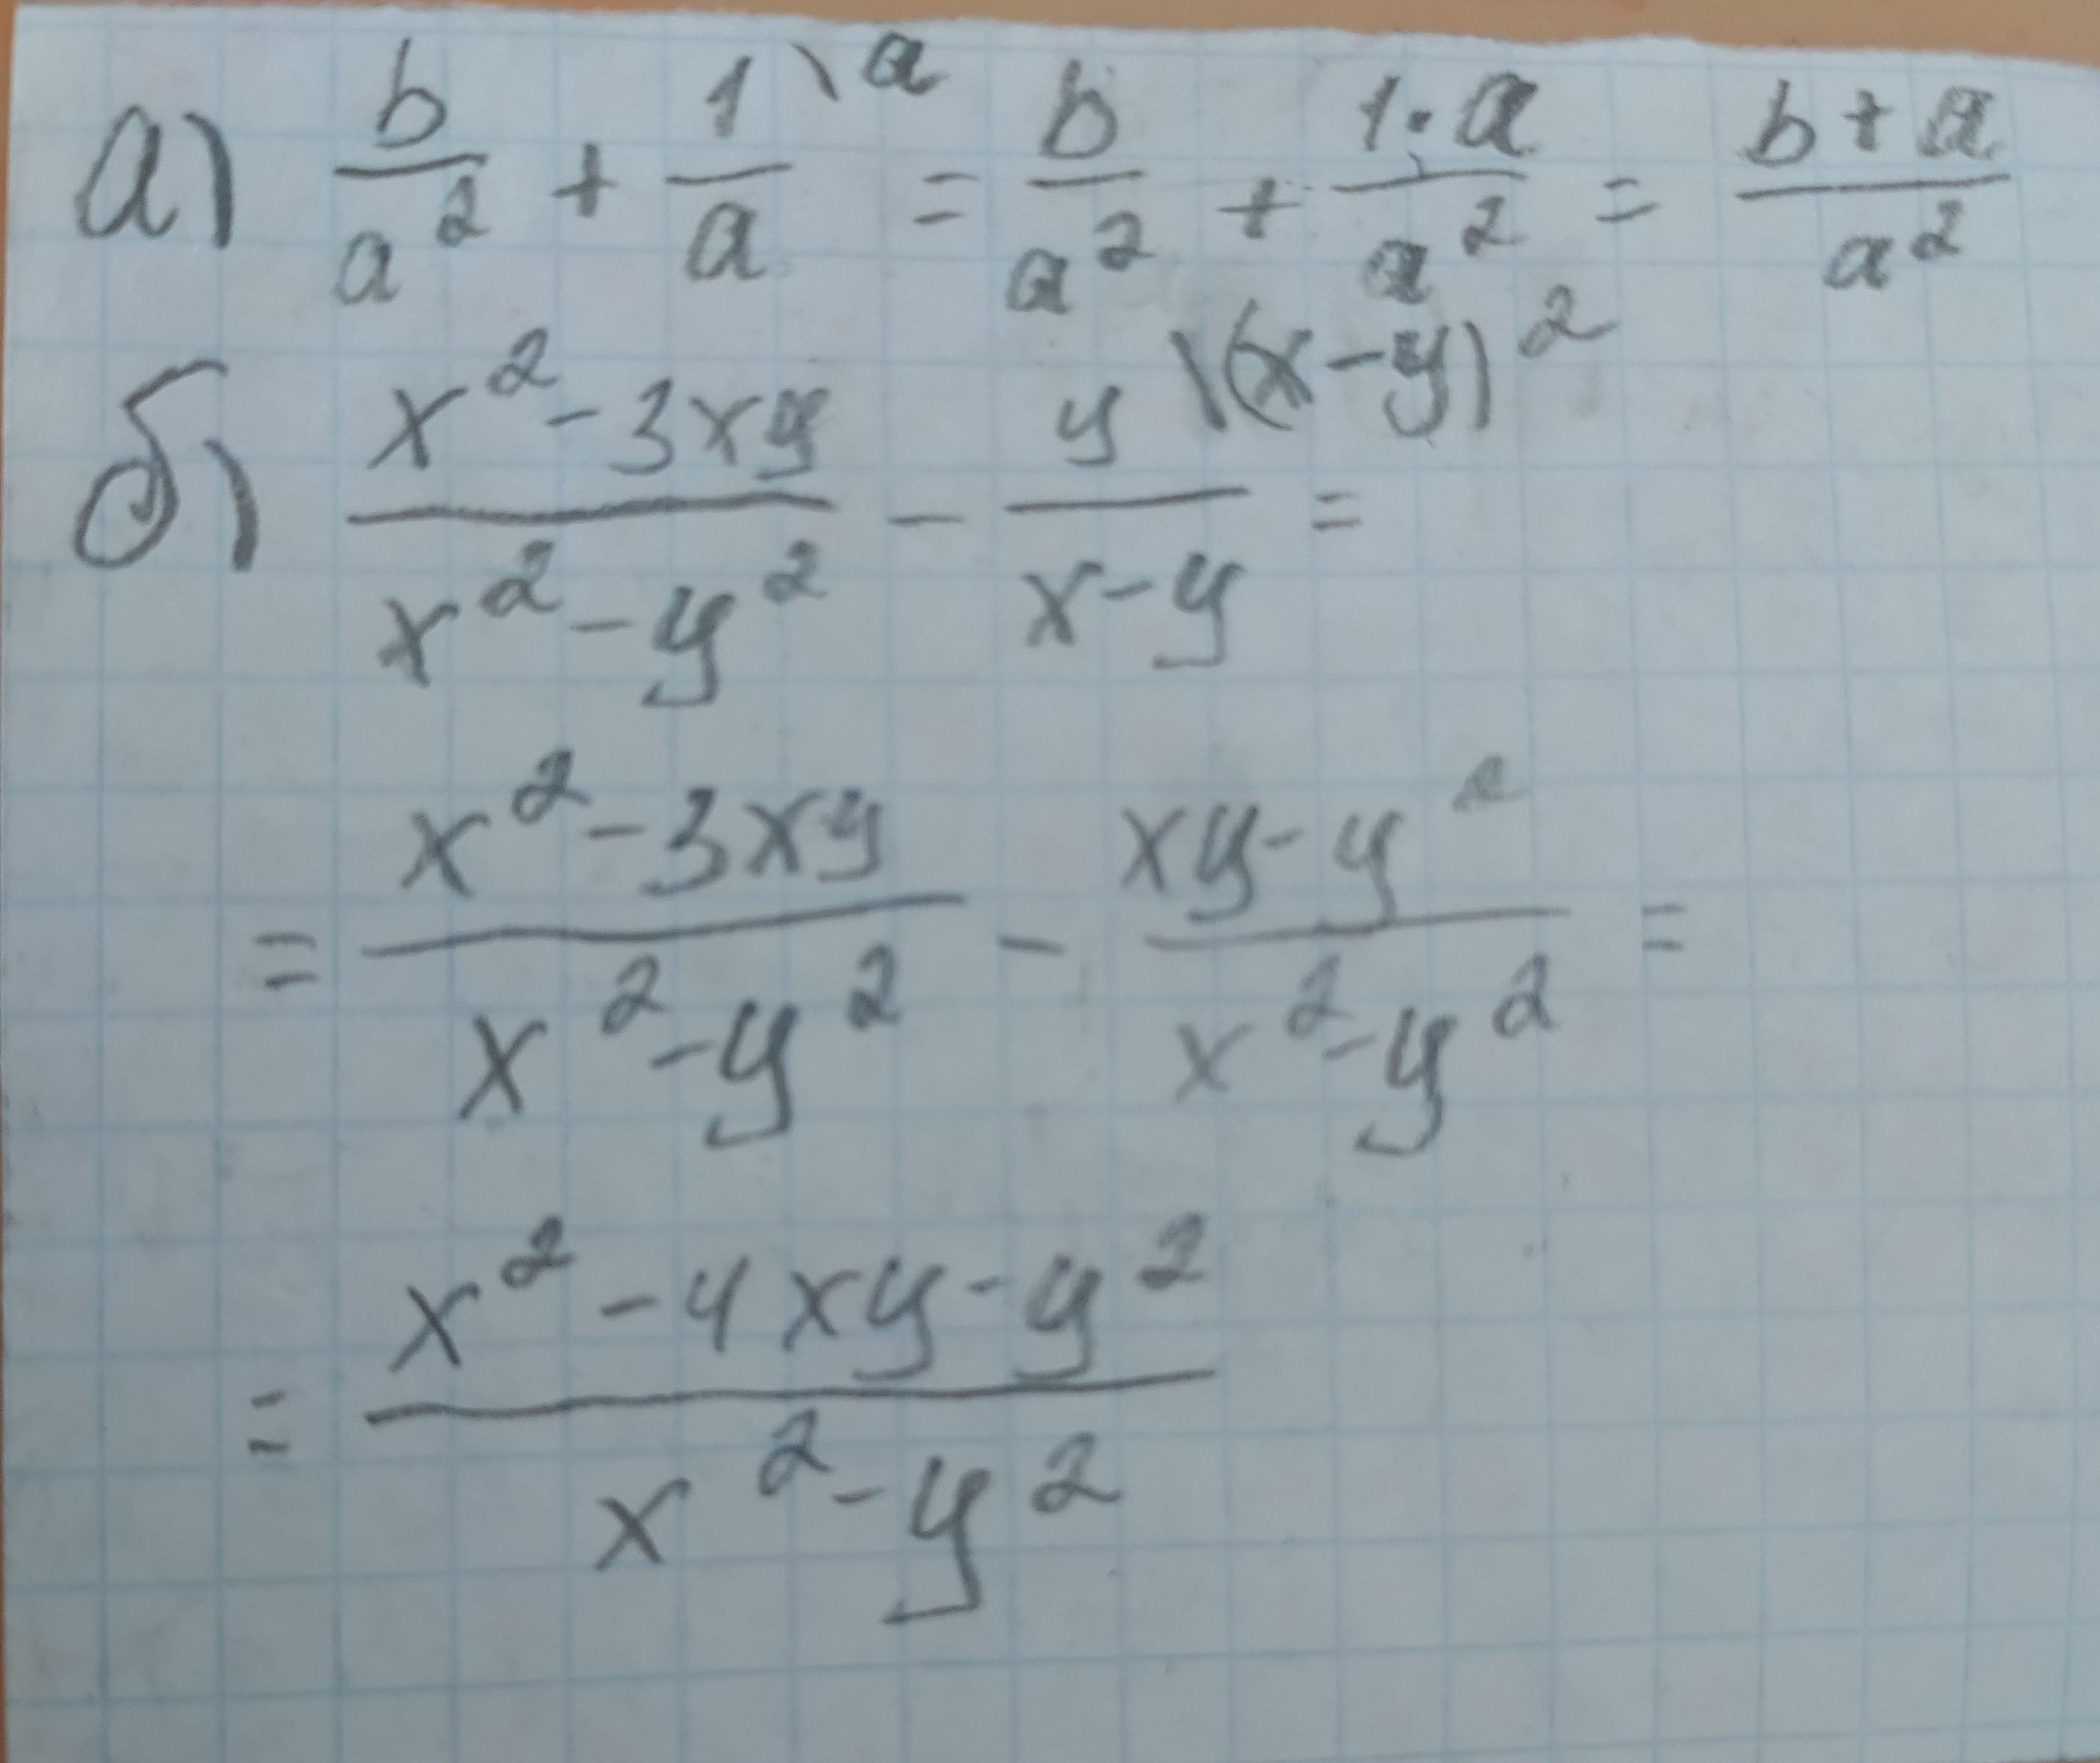 а) b/a² + 1/a \a = b/a² + 1·a/a² = b+a/a²
б) x²-3xy/x²-y² - y/x-y \(x-y)² =
= x²-3xy/x²-y² - xy-y²/x²-y² =
= x²-4xy-y²/x²-y²